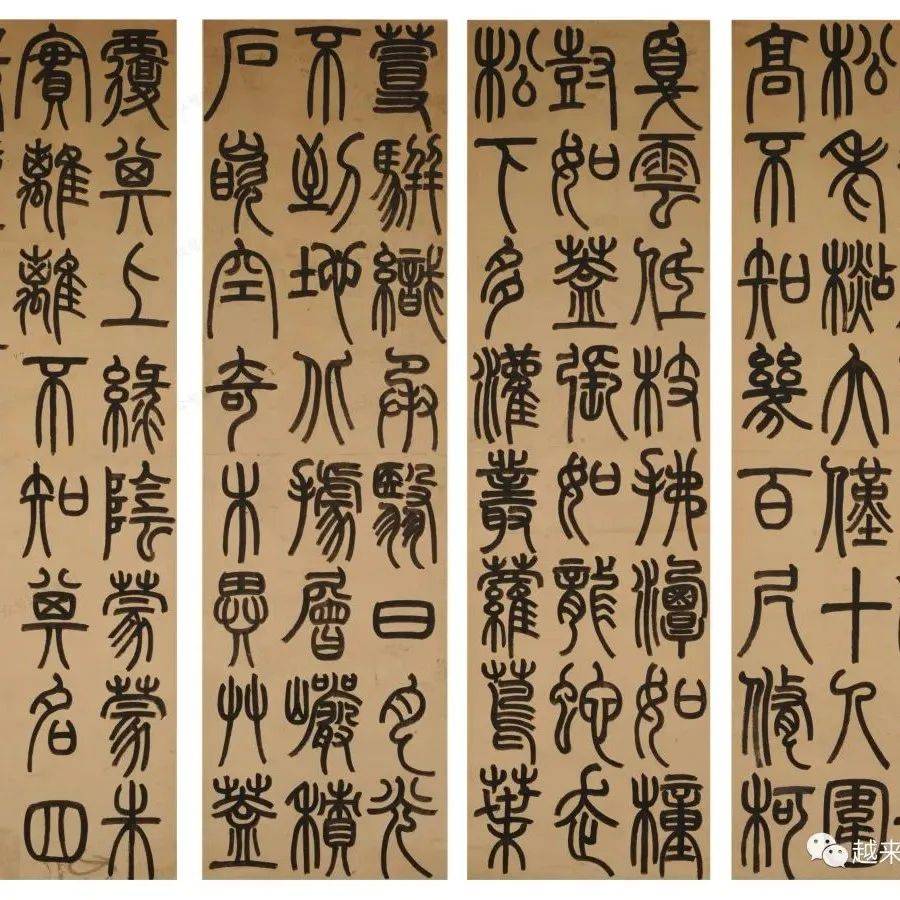 松老大僅十人圍
高不知幾百尺修柯
戛雲低枝拂潭如橦
尌如蓋張如龍蛇走
松下多灌叢蘿蔦葉
蔓駢織承翳日月光
不到地八據層巖積
石嵌空奇木異艸蓋
覆其上綠陰蒙蒙朱
實離離不知其名四
越来